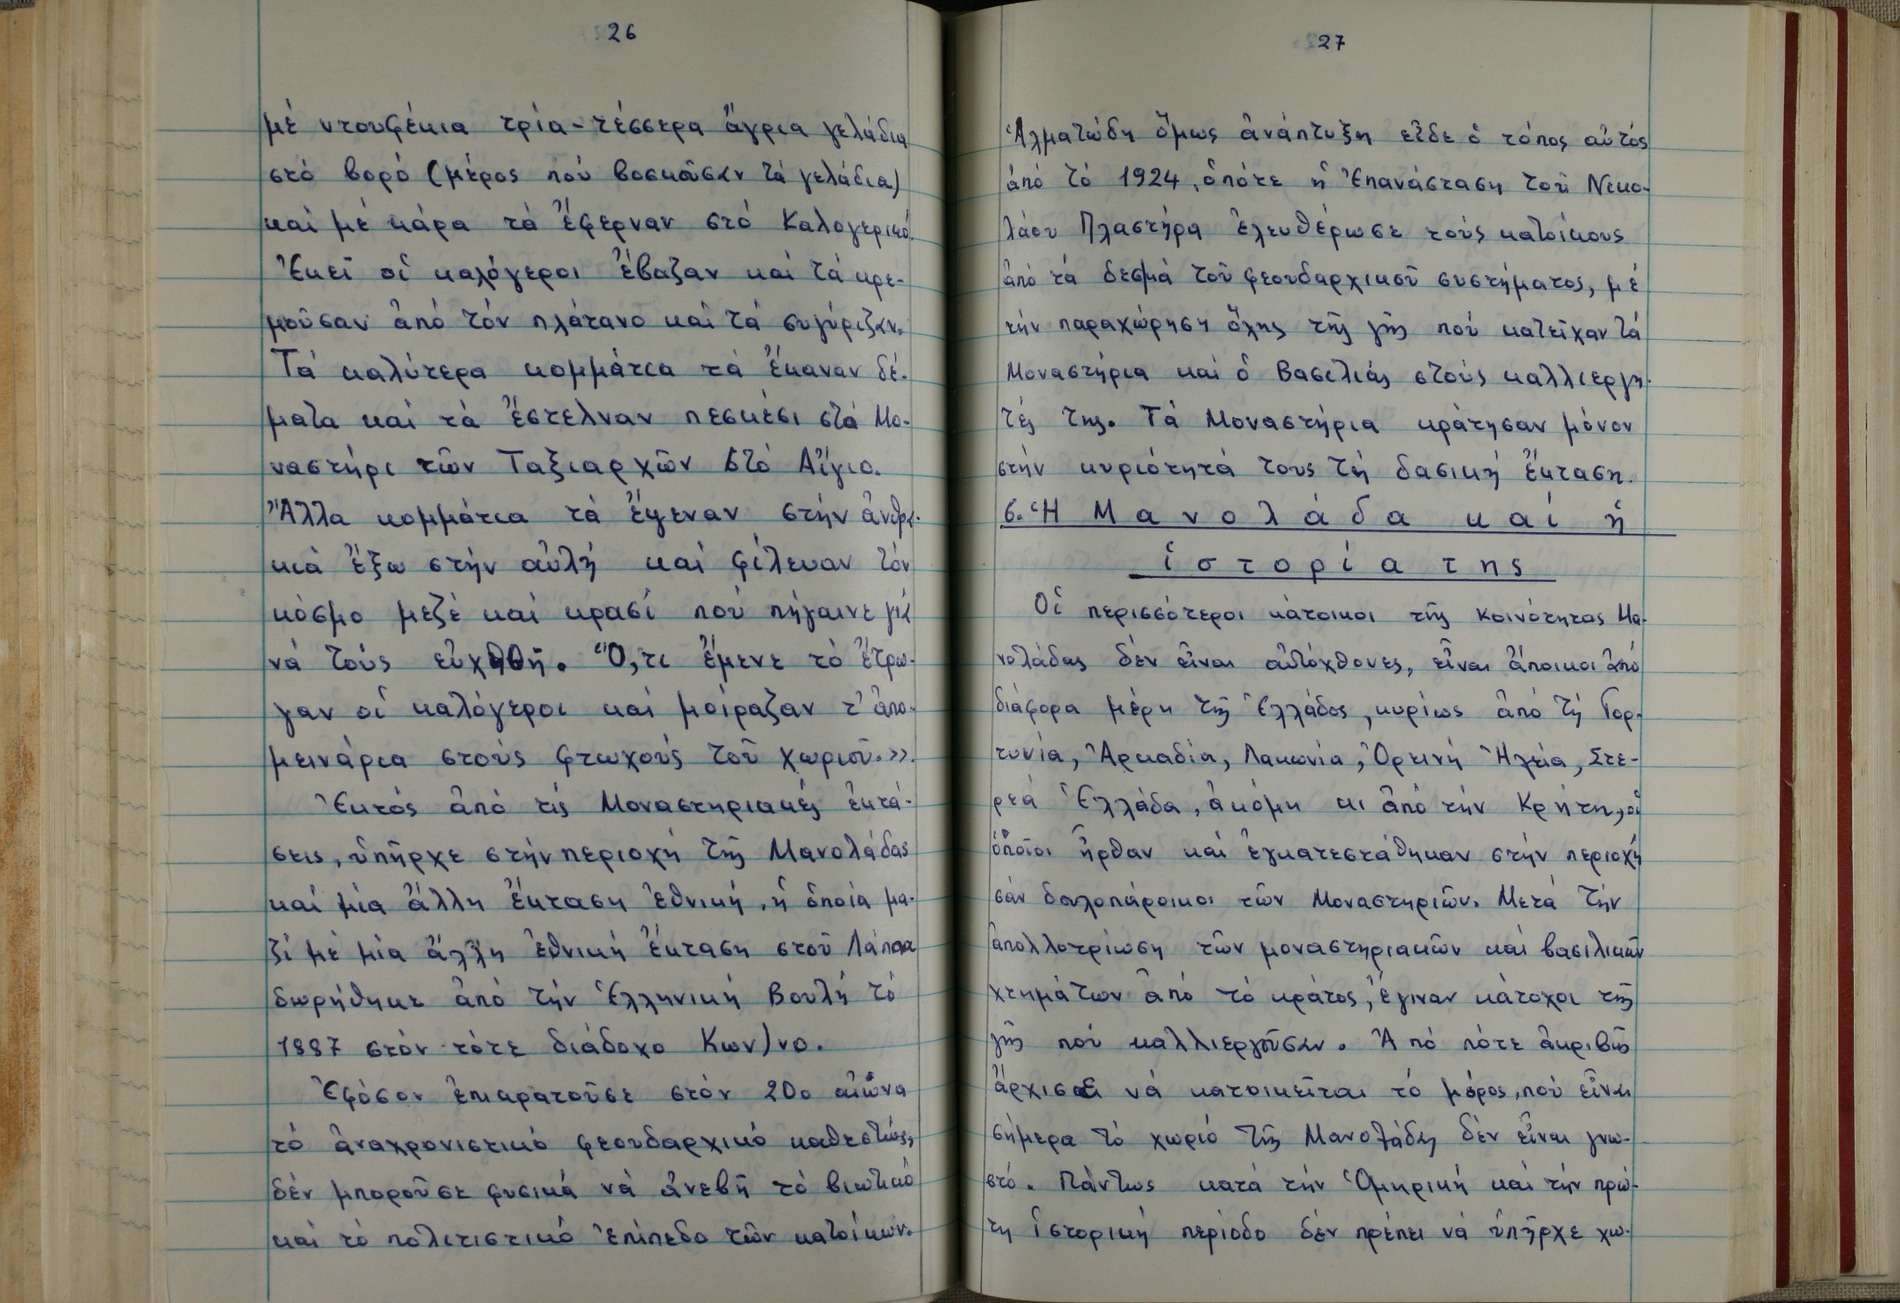 26
μέ ντουφέκια τρία-τέσσερα ἄγρια γελάδια
στό βορό (μέρος πού βοσκοῦσαν τά γελάδια)
καί μέ κάρα τά ἔφερναν στό Καλογερικό.
Ἐκεῖ οἱ καλόγεροι ἔβαζαν καί τά κρε-
μοῦσαν ἀπό τόν πλάτανο καί τά συγύριζαν.
Τά καλύτερα κομμάτια τά ἔκαναν δέ-
ματα καί τά ἔστελναν πεσκέσι στό Μο-
ναστήρι τῶν Ταξιαρχῶν στό Αἴγιο.
Ἄλλα κομμάτια τά ἔψεναν στήν ἀνθρα-
κιά ἔξω στήν αὐλή καί φίλευαν τόν
κόσμο μεζέ καί κρασί πού πήγαινε γιά
νά τούς εὐχηθῆ. Ὅ,τι ἔμενε τό ἔτρω-
γαν οἱ καλόγεροι καί μοίραζαν τ' ἀπο-
μεινάρια στούς φτωχούς τοῦ χωριοῦ.».
Ἐκτός ἀπό τίς Μοναστηριακές ἐκτά-
σεις, ὑπῆρχε στήν περιοχή τῆς Μανολάδας
καί μία ἄλλη ἔκταση ἐθνική, ἡ ὁποία μα-
ζί μέ μία ἄλλη ἐθνική ἔκταση στοῦ Λάππα
δωρήθηκε ἀπό τήν Ἑλληνική Βουλή τό
1887 στόν τότε διάδοχο Κων)νο.
Ἐφόσον ἐπικρατοῦσε στόν 20ο αἰώνα
τό ἀναχρονιστικό φεουδαρχικό καθεστώς,
δέν μποροῦσε φυσικά νά ἀνεβῆ τό βιωτικό
καί τό πολιτιστικό ἐπίπεδο τῶν κατοίκων.
27
Ἁλματώδη ὅμως ἀνάπτυξη εἶδε ὁ τόπος αὐτός
ἀπό τό 1924, ὁπότε ἡ Ἐπανάσταση τοῦ Νικο-
λάου Πλαστήρα ἐλευθέρωσε τούς κατοίκους
ἀπό τά δεσμά τοῦ φεουδαρχικοῦ συστήματος, μέ
τήν παραχώρηση ὅλης τῆς γῆς πού κατεῖχαν τά
Μοναστήρια καί ὁ Βασιλιάς στούς καλλιεργη-
τές της. Τά Μοναστήρια κράτησαν μόνον
στήν κυριότητά τους τή δασική ἔκταση.
6. Ἡ Μανολάδα καί ἡ
ἱστορία της
Οἱ περισσότεροι κάτοικοι τῆς Κοινότητας Μα-
νολάδας δέν εἶναι αὐτόχθονες, εἶναι ἄποικοι ἀπό
διάφορα μέρη τῆς Ἑλλάδος, κυρίως ἀπό τή Γορ-
τυνία, Ἀρκαδία, Λακωνία, Ὀρεινή Ἠλεία, Στε-
ρεά Ἑλλάδα, ἀκόμη κι ἀπό τήν Κρήτη, οἱ
ὁποῖοι ἦρθαν καί ἐγκατεστάθηκαν στήν περιοχή
σάν δουλοπάροικοι τῶν Μοναστηριῶν. Μετά τήν
ἀπολλοτρίωση τῶν μοναστηριακῶν καί βασιλικῶν
χτημάτων ἀπό τό κράτος, ἔγιναν κάτοχοι τῆς
γῆς πού καλλιεργοῦσαν. Ἀπό πότε ἀκριβῶς
ἄρχισε νά κατοικεῖται τό μέρος, πού εἶναι
σήμερα τό χωριό τῆς Μανολάδας δέν εἶναι γνω-
στό. Πάντως κατά τήν Ὁμηρική καί τήν πρώ-
τη ἱστορική περίοδο δέν πρέπει νά ὑπῆρχε χω-